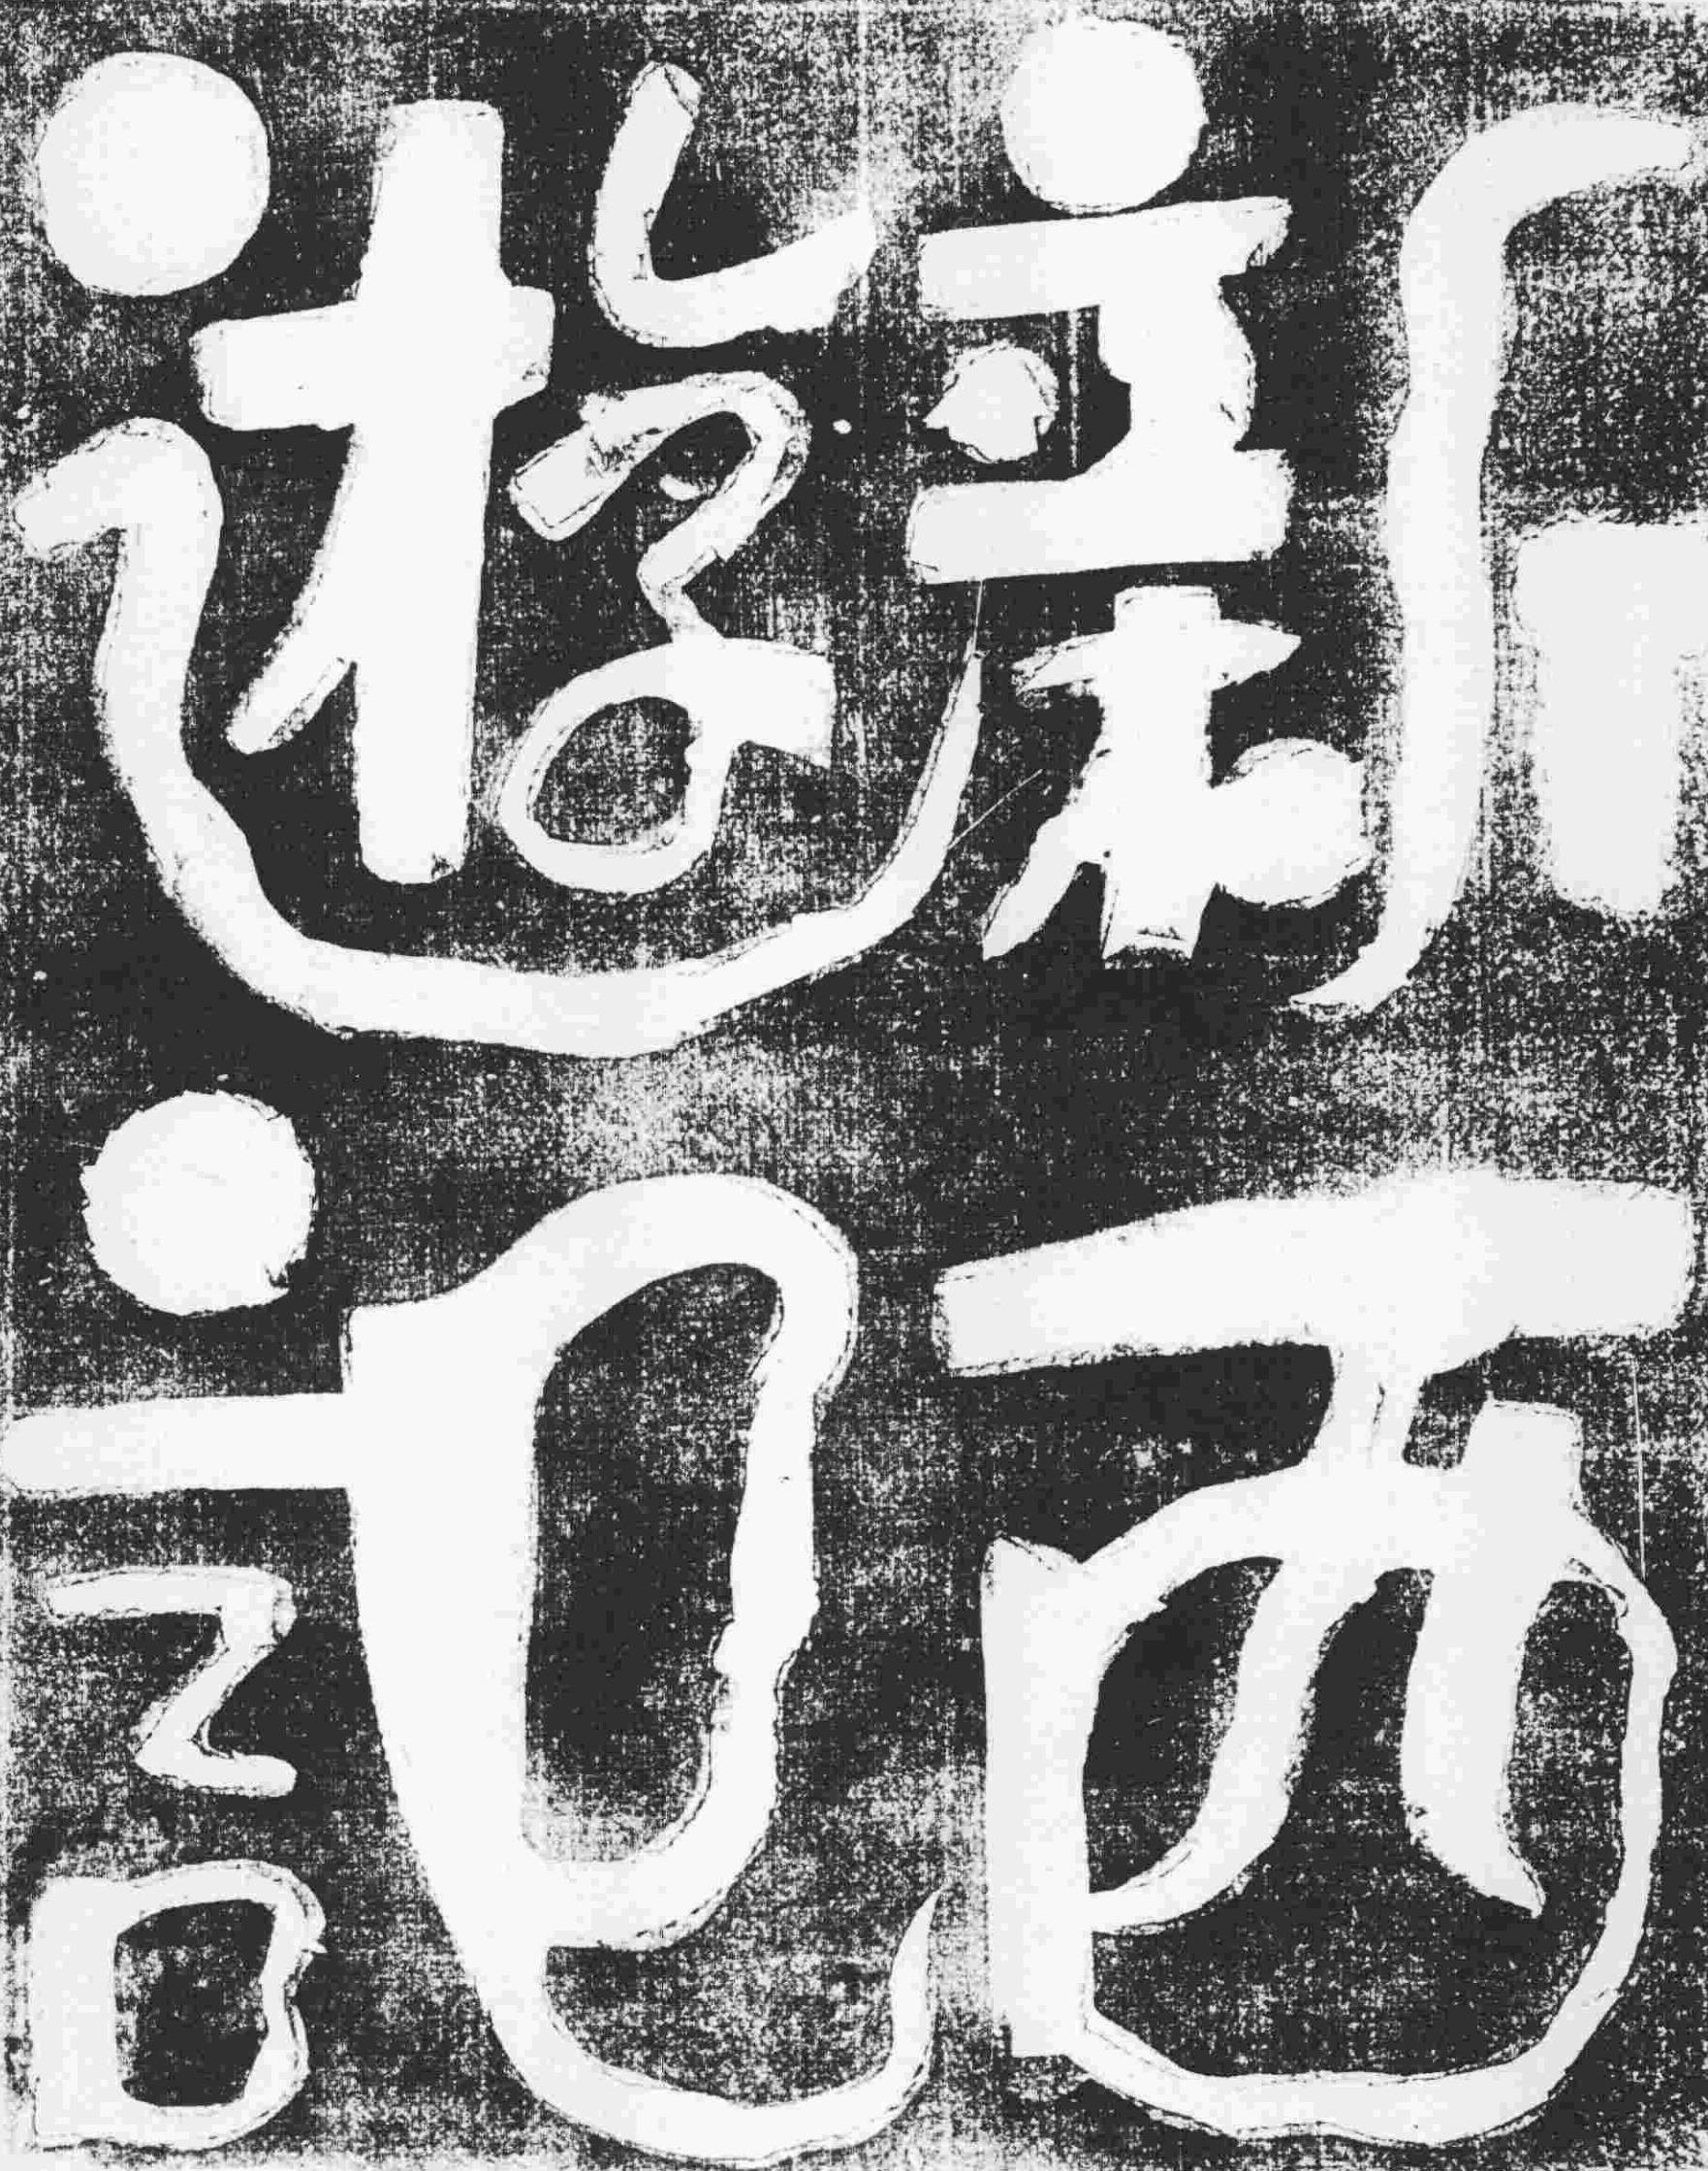 新西
遊記